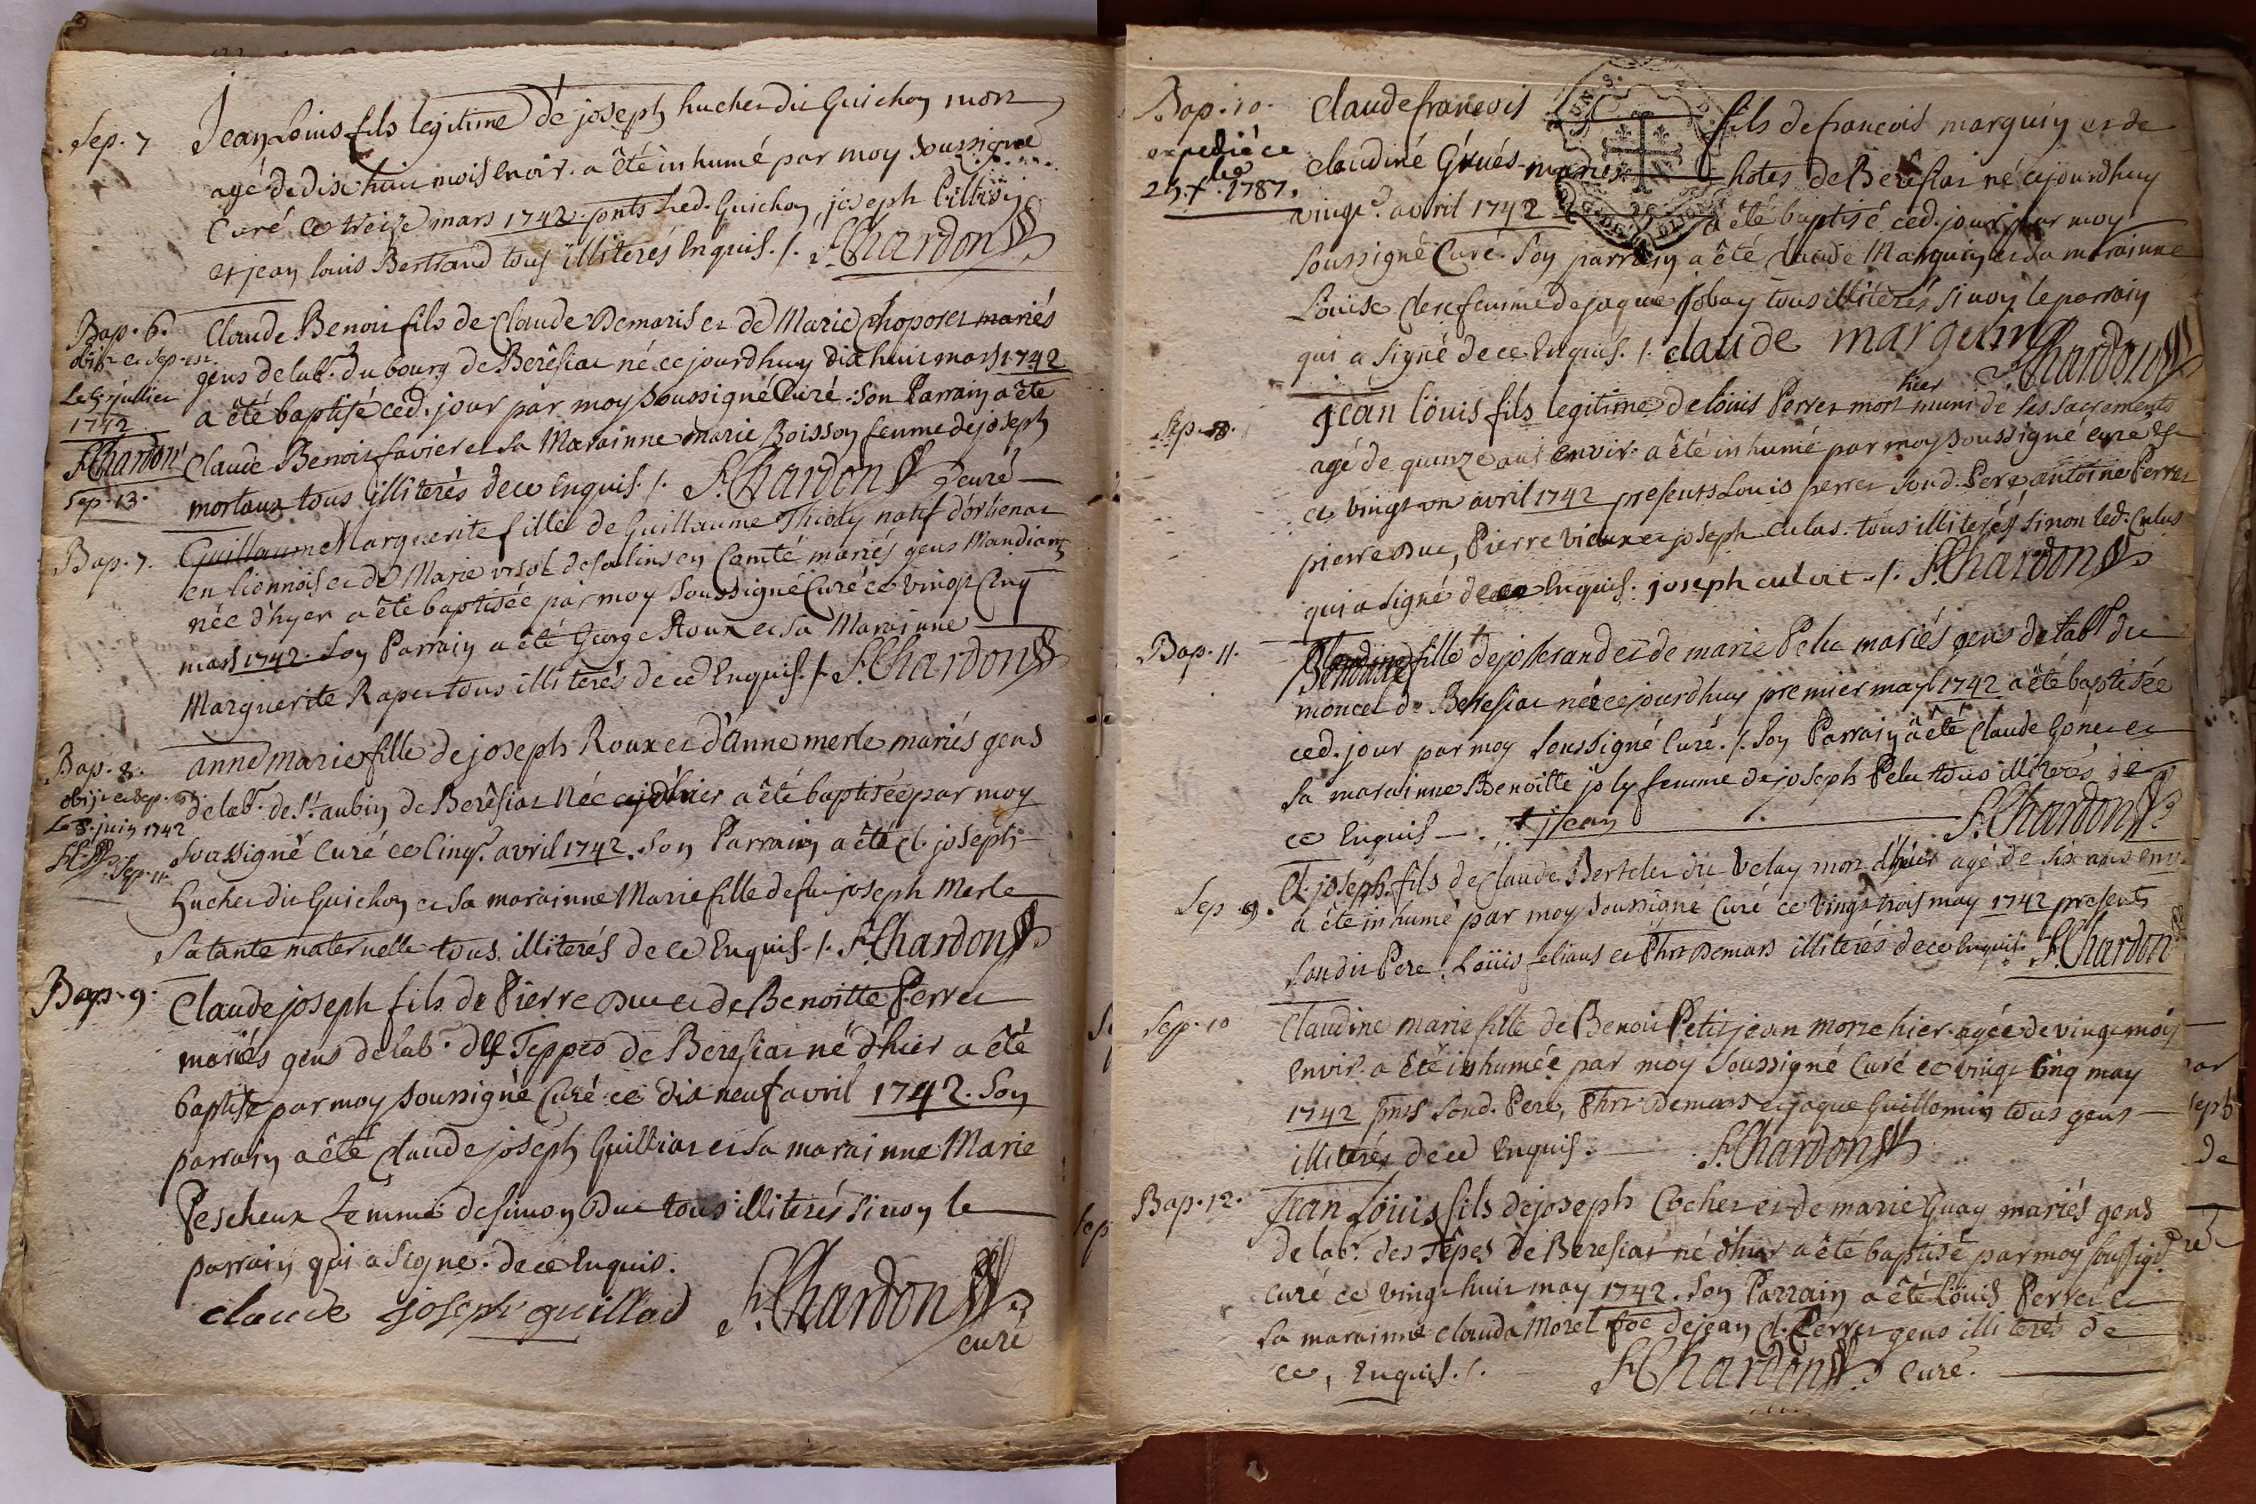 Sep. 7
Jean Louis fils legitime de joseph hucher dit Guichon mort
agé de dix huit mois envir. a êté inhumé par moy soussigné
Curé ce treize mars 1742. pnts led. Guichon, joseph
et jean louis Bertrand tous illiterés Enquis. /. f. Chardon
Bap. 6.
obijt et sep. est
Le juillet
1742
f. Chardon
Sep. 13.
Claude Benoit fils de Claude Demaris et de Marie Choposet mariés
gens de labr. du bourg de Berêsiat né ce jourdhuy dix huit mars 1742
a êté baptisé ced. jour par moy soussigné Curé. Son Parrain a êté
Claude Benoit favier et sa Marainne marie Boisson femme de joseph
mortaux tous illiterés de ce Enquis. /. f. Chardon curé
Bap. 7.
Guillaume Marguerite fille de Guillaume Thioly natif
en Lionnois et de Marie de salins en Comté mariés gens Mandians
née d'hyer a êté baptisée par moy soussigné Curé ce vingt Cinq
mars 1742. Son Parrain a êté George Roux et sa Marainne
Marguerite Rapet tous illiterés de ce Enquis. /. f. Chardon
Bap. 8.
obijt et sep. est
Le 8. juin 1742
Sep. 11.
anne marie fille de joseph Roux et d'Anne merle mariés gens
de labr. de St. aubin de Berêsiat Née hier a êté baptisée par moy
Soussigné Curé ce Cinqe. avril 1742. Son Parrain a êté Cl. joseph
hucher dit Guichon et sa marainne Marie fille de fu joseph Merle
sa tante maternelle tous illiterés de ce Enquis. /. f. Chardon
Bap. 9.
Claude joseph fils de Pierre Duc et de Benoitte Perret
mariés gens de labr. des Teppes de Beresiat né d'hier a êté
baptisé par moy soussigné Curé ce dix neuf avril 1742. Son
parrain a êté Claude joseph Guilliat et sa marainne Marie
Pescheux femme de simon Duc tous illiterés sinon le
parrain qui a signe. de ce enquis.
claude joseph guillad f. Chardon
curé
Bap. 10.
expedié ce
1787.
Claude francois fils de francois marguin et de
Claudine mariés hotes de Beresiat né ce jourdhuy
vingte. avril 1742 a êté baptisé ced. jour par moy
soussigné Curé. Son parrain a êté Claude Marguin et sa marainne
Louise Clere femme de jaque tous illiterés sinon le parrain
qui a signé de ce Enquis. /. claude marguin
f. Chardon
Sep. 8.
jean loüis fils legitime de loüis Perret mort hier muni de ses sacrements
agé de quinze ans envir. a êté inhumé par moy soussigné curé
ce vingt un avril 1742 presents Louis perret sond. Pere antoine Perret
pierre Duc, Pierre Vieux et joseph culas. tous illiterés sinon led. Culas
qui a signé de ce Enquis. joseph /. f. Chardon
Bap. 11.
fille de jo et de marie Pelu mariés gens de labr. du
moncel de Beresiat née ce jourdhuy premier may 1742 a êté baptisée
ced. jour par moy soussigné Curé. /. Son Parrain a êté Claude Gonet et
sa marainne Benoitte joly femme de joseph Pelu tous illiterés de
ce Enquis f. Chardon
Sep. 9.
jean
Cl. joseph fils de Claude Bertelet dit Velay mort d'hier agé de six ans env.
a êté inhumé par moy soussigné Curé ce vingt trois may 1742 presents
son dit Pere, Loüis felians et Phrt. Demars illiterés de ce Enquis. f. Chardon
Sep. 10
Claudine marie fille de Benoit Petitjean morte hier agée de vingt mois
Envir. a êté inhumée par moy soussigné Curé ce vingt Cinq may
1742 pnts sond. Pere, Phrt. Demars et jaque Guillemin tous gens
illiterés de ce Enquis. f. Chardon
Bap. 12.
Jean Loüis fils de joseph Cochet et de marie Guay mariés gens
de labr. des Têpes de Beresiat né d'hier a êté baptisé par moy soussigé.
curé ce vingt huit may 1742. Son Parrain a êté Loüis Perret et
sa marainne Clauda Morel fee de jean Cl. Perret gens illiterés de
ce, Enquis. /. f. Chardon Curé.